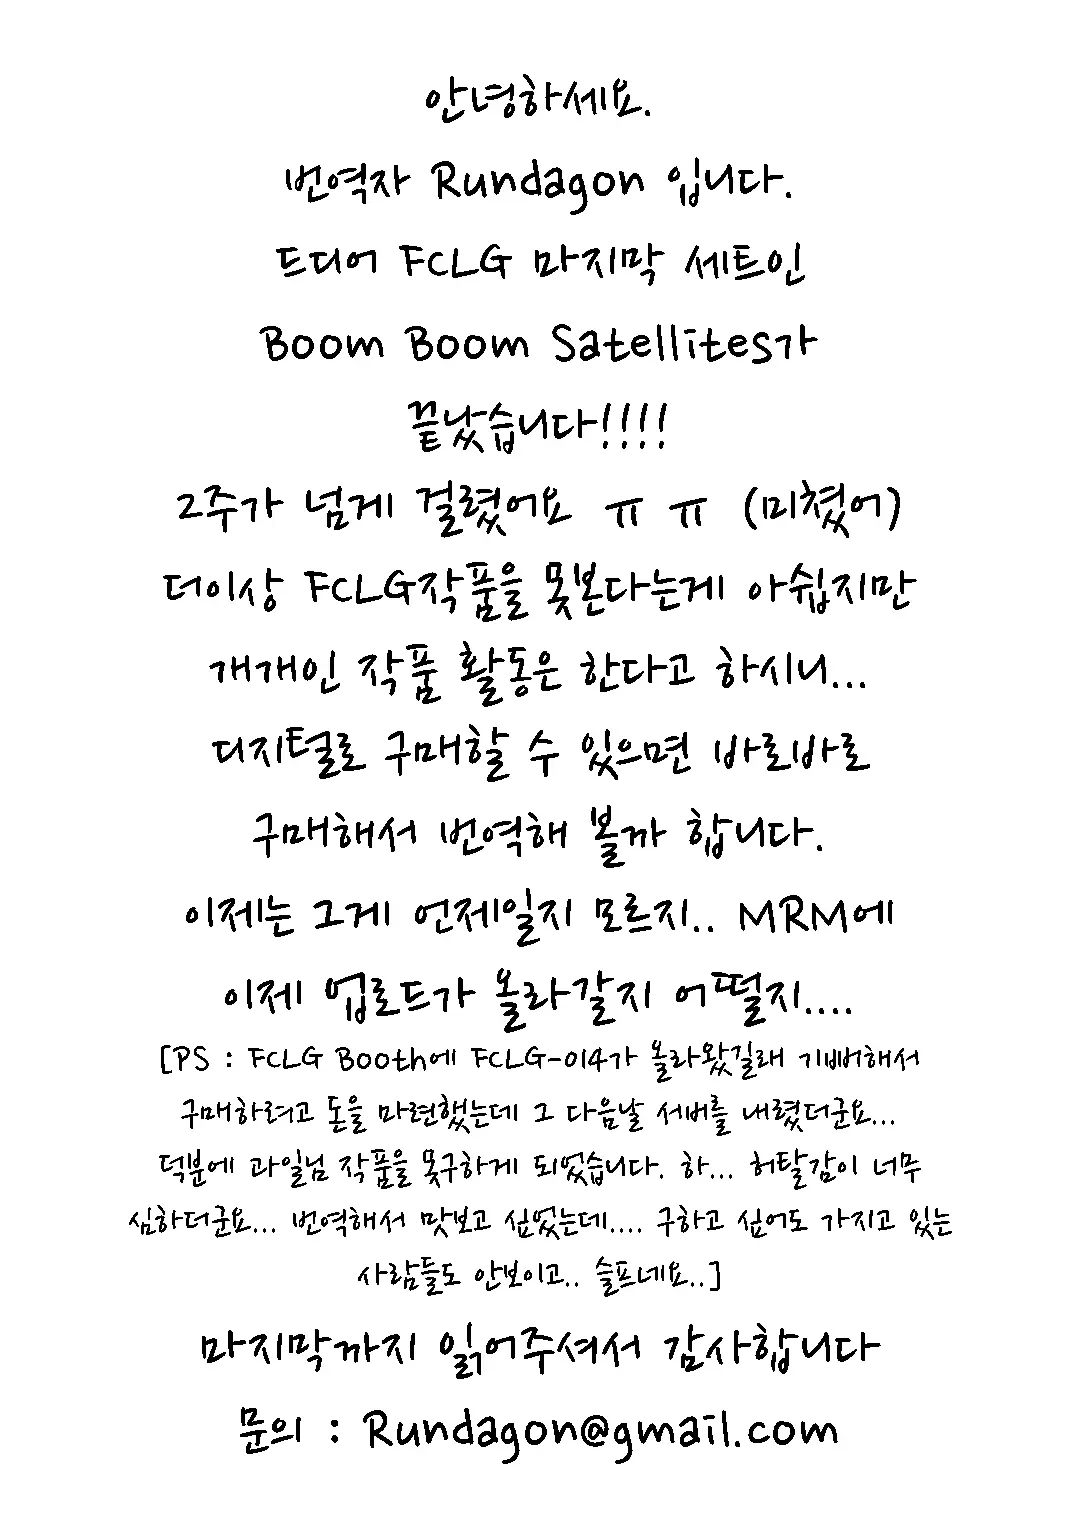 안녕하세요.
번역자 Rundagon 입니다.
드디어 FCLG 마지막 세트인
Boom Boom Satellites가
끝났습니다!!!!
2주가 넘게 걸렸어요 ㅠ ㅠ (미쳤어)
더이상 FCLG작품을 못본다는게 아쉽지만
개개인 작품 활동은 한다고 하시니...
디지털로 구매할 수 있으면 바로바로
구매해서 번역해 볼까 합니다.
이제는 그게 언제일지 모르지.. MRM에
이제 업로드가 올라갈지 어떨지....
[PS : FCLG Booth에 FCLG-014가 올라왔길래 기뻐해서
구매하려고 돈을 마련했는데 그 다음날 서버를 내렸더군요...
덕분에 과일님 작품을 못구하게 되었습니다. 하... 허탈감이 너무
심하더군요... 번역해서 맛보고 싶었는데.... 구하고 싶어도 가지고 있는
사람들도 안보이고.. 슬프네요..]
마지막까지 읽어주셔서 감사합니다
문의 : Rundagon@gmail.com